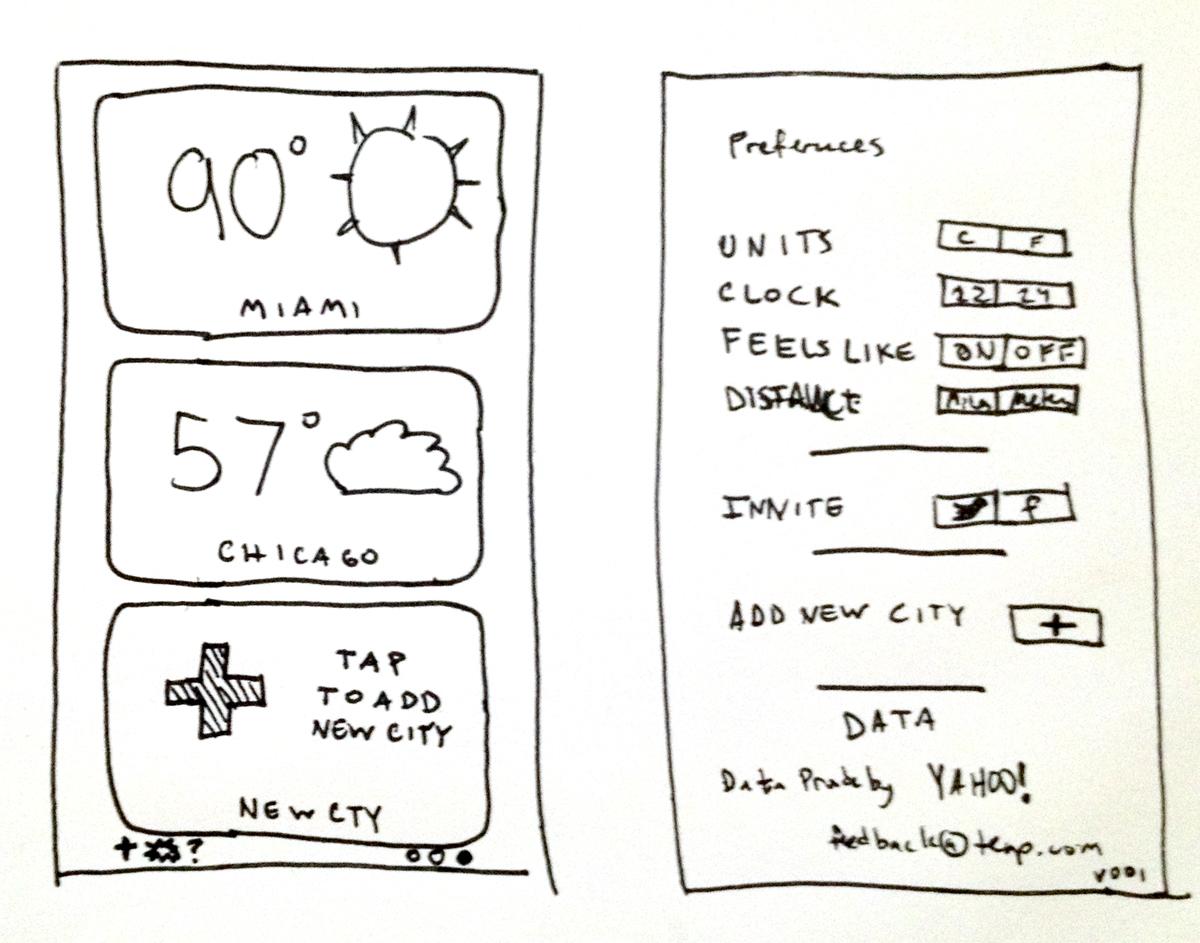 90°
MIAMI
57°
CHICAGO
TAP
TO ADD
NEW CITY
NEW CTY
+ ?
Preferences
UNITS C F
CLOCK 12 24
FEELS LIKE ON OFF
DISTANCE Miles Meters
INVITE f
ADD NEW CITY +
DATA
Data Provide by YAHOO!
feedback@temp.com
v001